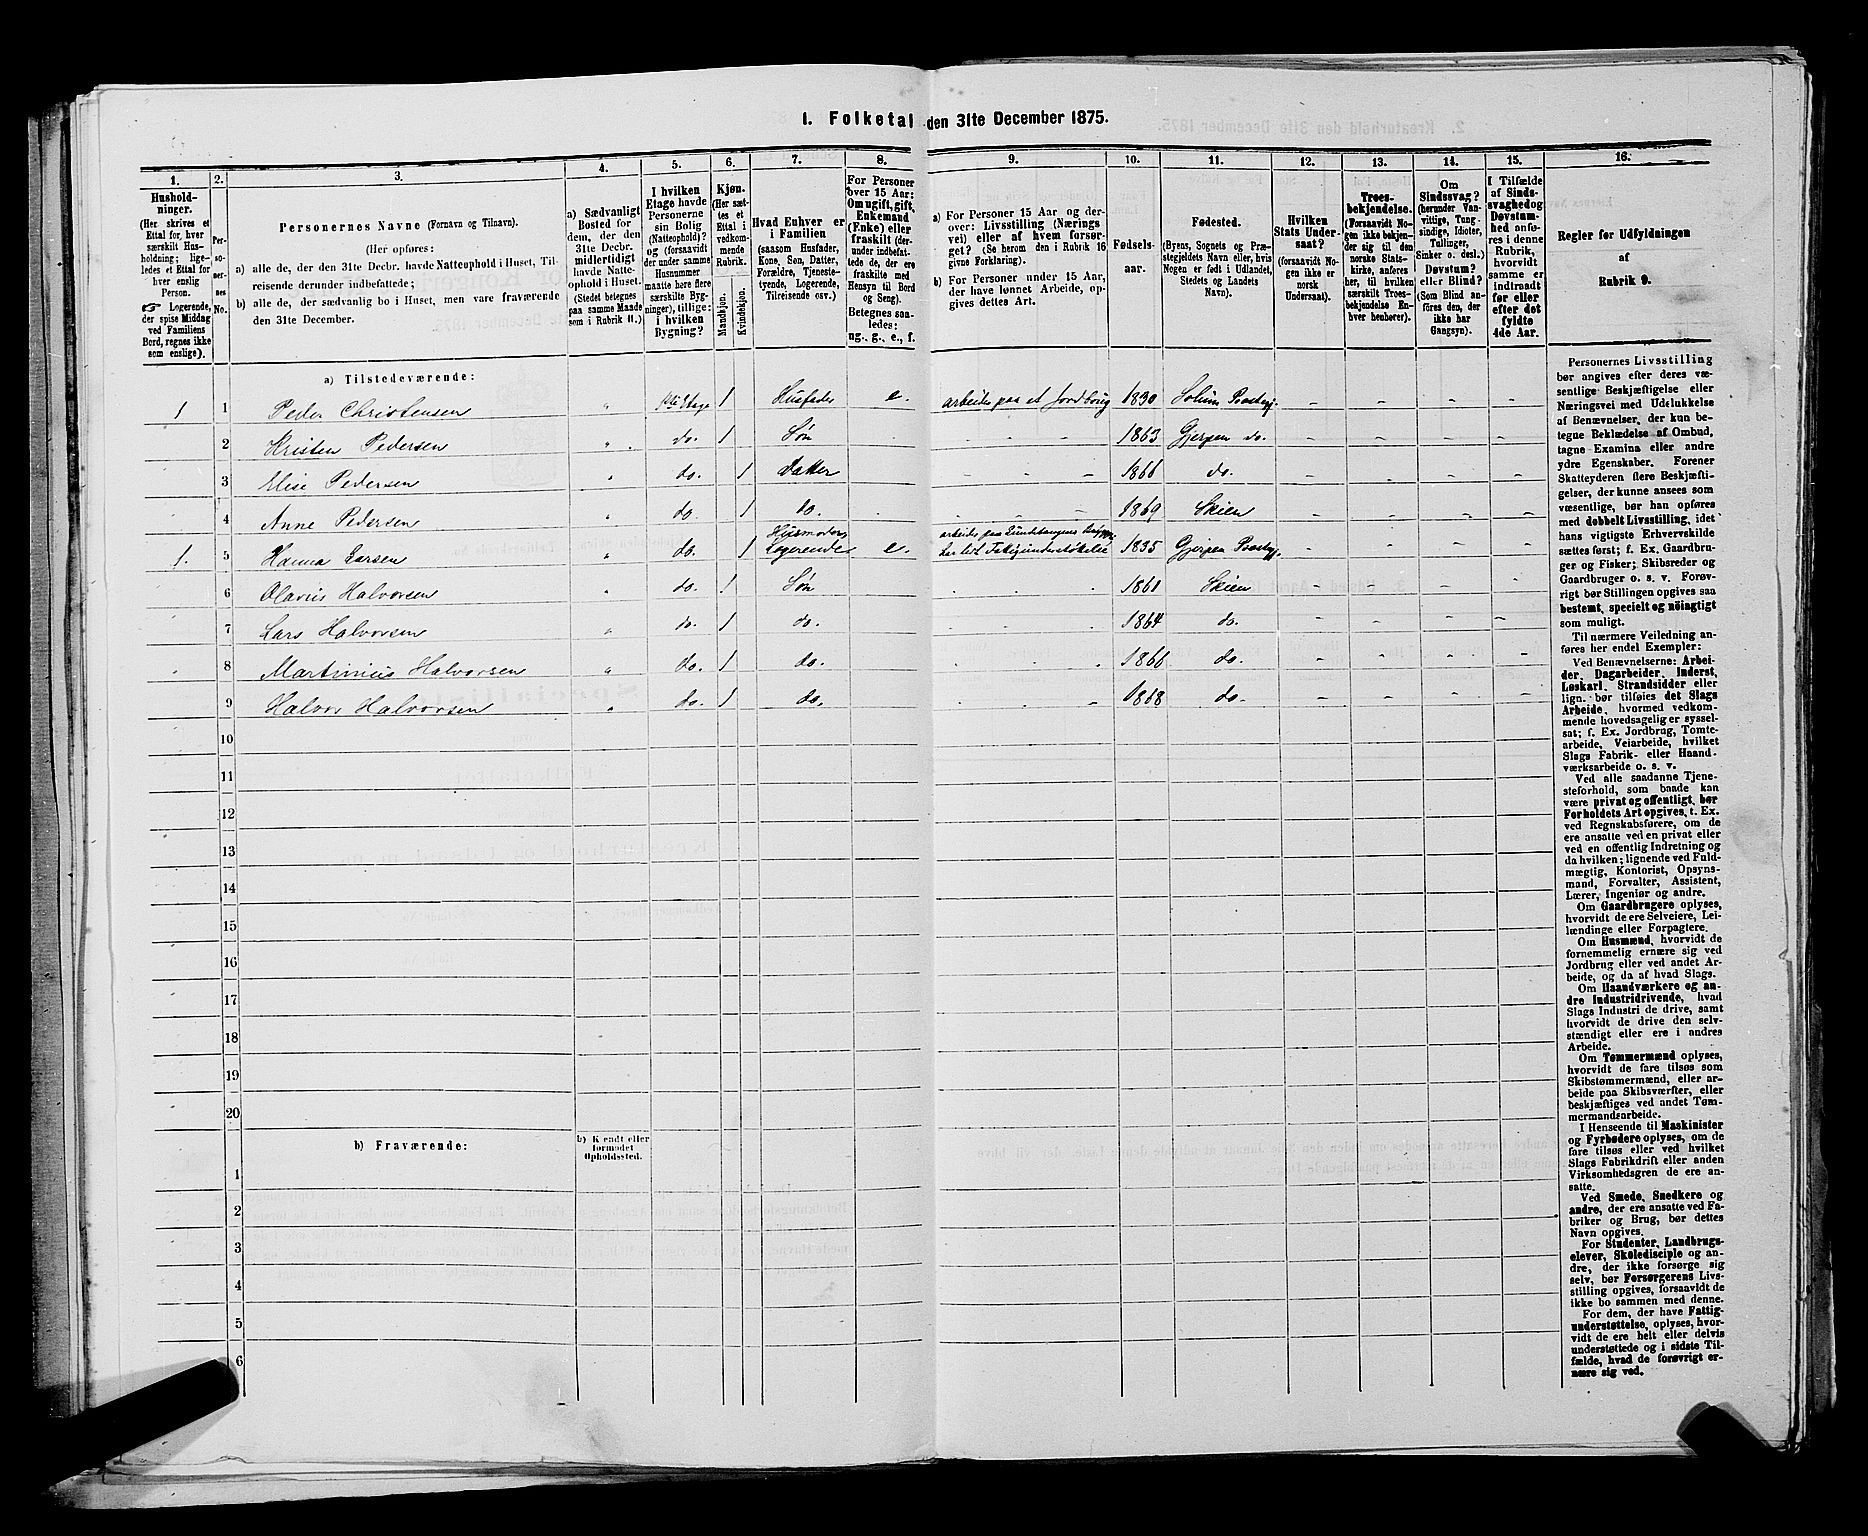 1. Folketal den 31te December 1875.
1.
Hushold-
ninger.
(Her skrives et
Ettal for, hver
særskilt Hus-
holdning; lige-
ledes et Ettal for
hver enslig
Person.
Logerende,
der spise Middag
ved Familiens
Bord, regnes ikke
som enslige).
2.
Per-
so-
ner-
nes
No.
3.
Personernes Navne (Fornavn og Tilnavn).
(Her opføres:
a) alle de, der den 31te Decbr. havde Natteophold i Huset, Til-
reisende derunder indbefattede;
b) alle de, der sædvanlig bo i Huset, men vare fraværende
den 31te December.
4.
a) Sædvanligt
Bosted for
dem, der den
31te Decbr.
midlertidigt
havde Natte-
ophold i Huset.
(Stedet betegnes
paa samme Maade
som i Rubrik 11.)
5.
I hvilken
Etage havde
Personerne
sin Bolig
(Natteophold)?
og (forsaavidt
der under samme
Husnummer
maatte høre flere
særskilte Byg-
ninger), tillige:
i hvilken
Bygning?
6.
Kjøn.
(Her sæt-
tes et
Ettal i
vedkom-
mende
Rubrik.
Mandkjøn.
Kvindekjøn.
7.
Hvad Enhver er
i Familien
(saasom Husfader,
Kone, Søn, Datter,
Forældre, Tjeneste-
tyende, Logerende,
Tilreisende osv.)
8.
For Personer
over 15 Aar:
Om ugift, gift,
Enkemand
(Enke) eller
fraskilt (der-
under indbefat-
tede de, der ere
fraskilte med
Hensyn til Bord
og Seng).
Betegnes saa-
ledes:
ug., g., e., f.
9.
a) For Personer 15 Aar og der-
over: Livsstilling (Nærings
vei) eller af hvem forsør-
get? (Se herom den i Rubrik 16
givne Forklaring).
b) For Personer under 15 Aar,
der have lønnet Arbeide, op-
gives dettes Art.
10.
Fødsels-
aar.
11.
Fødested.
(Byens, Sognets og Præ-
stegjeldets Navn eller, hvis
Nogen er født i Udlandet,
Stedets og Landets
Navn).
12.
Hvilken
Stats Under-
saat?
(forsaavidt No-
gen ikke er
norsk
Undersaat).
13.
Troes-
bekjendelse.
(Forsaavidt No-
gen ikke bekjen-
der sig til den
norske Stats-
kirke, anføres
her, til hvilken
særskilt Troes-
bekjendelse En-
hver henhører).
14.
Om
Sindssvag?
(herunder Van-
vittige, Tung-
sindige, Idioter,
Tullinger,
Sinker o. desl.)
Døvstum?
eller Blind?
(Som Blind an-
føres den, der
ikke har
Gangsyn).
15.
I Tilfælde
af Sinds-
svaghed og
Døvstum-
hed anfø-
res i denne
Rubrik,
hvorvidt
samme er
indtraadt
før eller
efter det
fyldte
4de Aar.
16.
Regler før Udfyldningen
af
Rubrik 9.
a) Tilstedeværende:
1 1 Peder Christensen " 1ste Etage 1 Husfader e. arbeider paa et Jordbrug 1830 Solum Præstegj. - - - -
2 Kristen Pedersen " do. 1 Søn - - - 1863 Gjerpen do. - - - -
3 Elise Pedersen " do. 1 Datter - - - 1866 do. - - - -
4 Anne Pedersen " do. 1 do. - - - 1869 Skien - - - -
1. 5 Hanna Larsen " do. 1 Husmoder, Logerende e. 1835 Gjerpen Præstegj. - - - -
6 Olavus Halvorsen " do. 1 Søn 1861 Skien - - - -
7 Lars Halvorsen " do. 1 do. 1864 do. - - - -
8 Martinius Halvorsen " do. 1 do. 1866 do. - - - -
9 Halvor Halvorsen " do. 1 do. 1868 do. - - - -
10
11
12
13
14
15
16
17
18
19
20
b) Fraværende:
b) Kjendt eller
formodet
Opholdssted.
1
2
3
4
5
6
Personernes Livsstilling
bør angives efter deres væ-
sentlige Beskjæftigelse eller
Næringsvei med Udelukkelse
af Benævnelser, der kun be-
tegne Beklædelse af Ombud,
tagne Examina eller andre
ydre Egenskaber. Forener
Skatteyderen flere Beskjæfti-
gelser, der kunne ansees som
væsentlige, bør han opføres
med dobbelt Livsstilling, idet
hans vigtigste Erhvervskilde
sættes først; f. Ex. Gaardbru-
ger og Fisker; Skibsreder og
Gaardbruger o. s. v. Forøv-
rigt bør Stillingen opgives saa
bestemt, specielt og nöiagtigt
som muligt.
Til nærmere Veiledning an-
føres her endel Exempler:
Ved Benævnelserne: Arbei-
der, Dagarbeider, Inderst,
Løskarl, Strandsidder eller
lign. bør tilføies det Slags
Arbeide, hvormed vedkom-
mende hovedsagelig er syssel-
sat; f. Ex. Jordbrug, Tomte-
arbeide, Veiarbeide, hvilket
Slags Fabrik- eller Haand-
værksarbeide o. s. v.
Ved alle saadanne Tjene-
steforhold, som baade kan
være privat og offentligt, bør
Forholdets Art opgives, t. Ex.
ved Regnskabsførere, om de
ere ansatte ved en privat eller
ved en offentlig Indretning og
da hvilken; lignende ved Fuld-
mægtig, Kontorist, Opsyns-
mand, Forvalter, Assistent,
Lærer, Ingeniør og andre.
Om Gaardbrugere oplyses,
hvorvidt de ere Selveiere, Lei-
lændinge eller Forpagtere.
Om Husmænd, hvorvidt de
fornemmelig ernære sig ved
Jordbrug eller ved andet Ar-
beide, og da af hvad Slags.
Om Haandværkere og an-
dre Industridrivende, hvad
Slags Industri de drive, samt
hvorvidt de drive den selv-
stændigt eller ere i andres
Arbeide.
Om Tømmermænd oplyses,
hvorvidt de fare tilsøs som
Skibstømmermænd, eller ar-
beide paa Skibsværfter, eller
beskjæftiges ved andet Tøm-
mermandsarbeide.
I Henseende til Maskinister
og Fyrbødere oplyses, om de
fare tilsøs eller ved hvilket
Slags Fabrikdrift eller anden
Virksomhedsgren de ere an-
satte.
Ved Smede, Snedkere og
andre, der ere ansatte ved Fa-
briker og Brug, bør dettes
Navn opgives.
For Studenter, Landbrugs-
elever, Skoledisciple og an-
dre, der ikke forsørge sig
selv, bør Forsørgerens Livs-
stilling opgives, forsaavidt de
ikke bo sammen med denne.
For dem, der have Fattig-
understøttelse, oplyses, hvor-
vidt de ere helt eller delvis
understøttede og i sidste Til-
fælde, hvad de forøvrigt er-
nære sig ved.